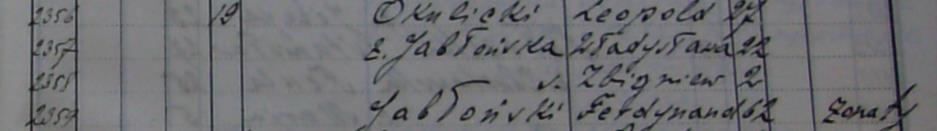 2356 19 Okulicki Leopold 27
2357 ż. Jabłońska Władysława 22
2358 s. Zbigniew 2
2359 Jabłoński Ferdynand 62 żonaty